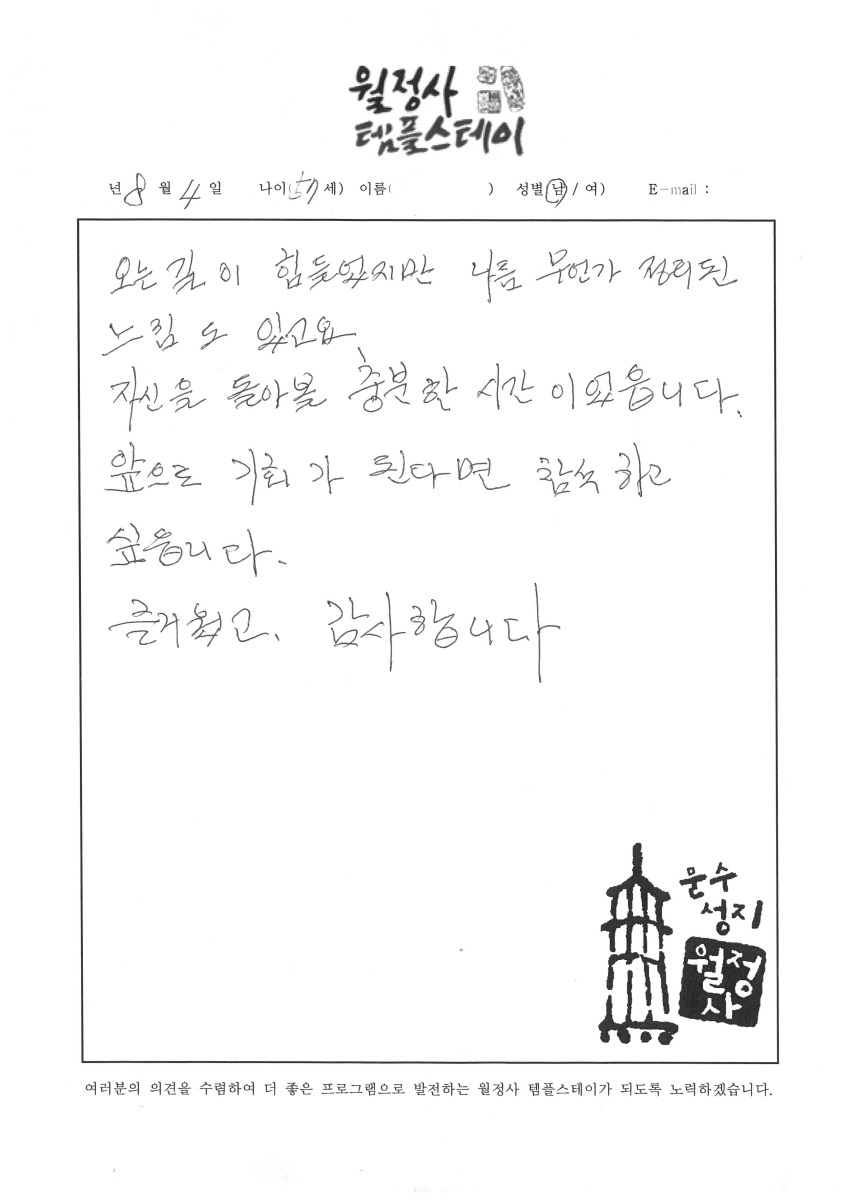 월정사
템플스테이
년 8 월 4 일 나이(57세) 이름( ) 성별(남/여) E-mail :
오는 길이 힘들었지만 나름 무언가 정리된
느낌도 있고요.
자신을 돌아볼 충분한 시간이었읍니다.
앞으로 기회가 된다면 참석하고
싶읍니다.
즐거웠고, 감사합니다
문수
성지
월정
사
여러분의 의견을 수렴하여 더 좋은 프로그램으로 발전하는 월정사 템플스테이가 되도록 노력하겠습니다.